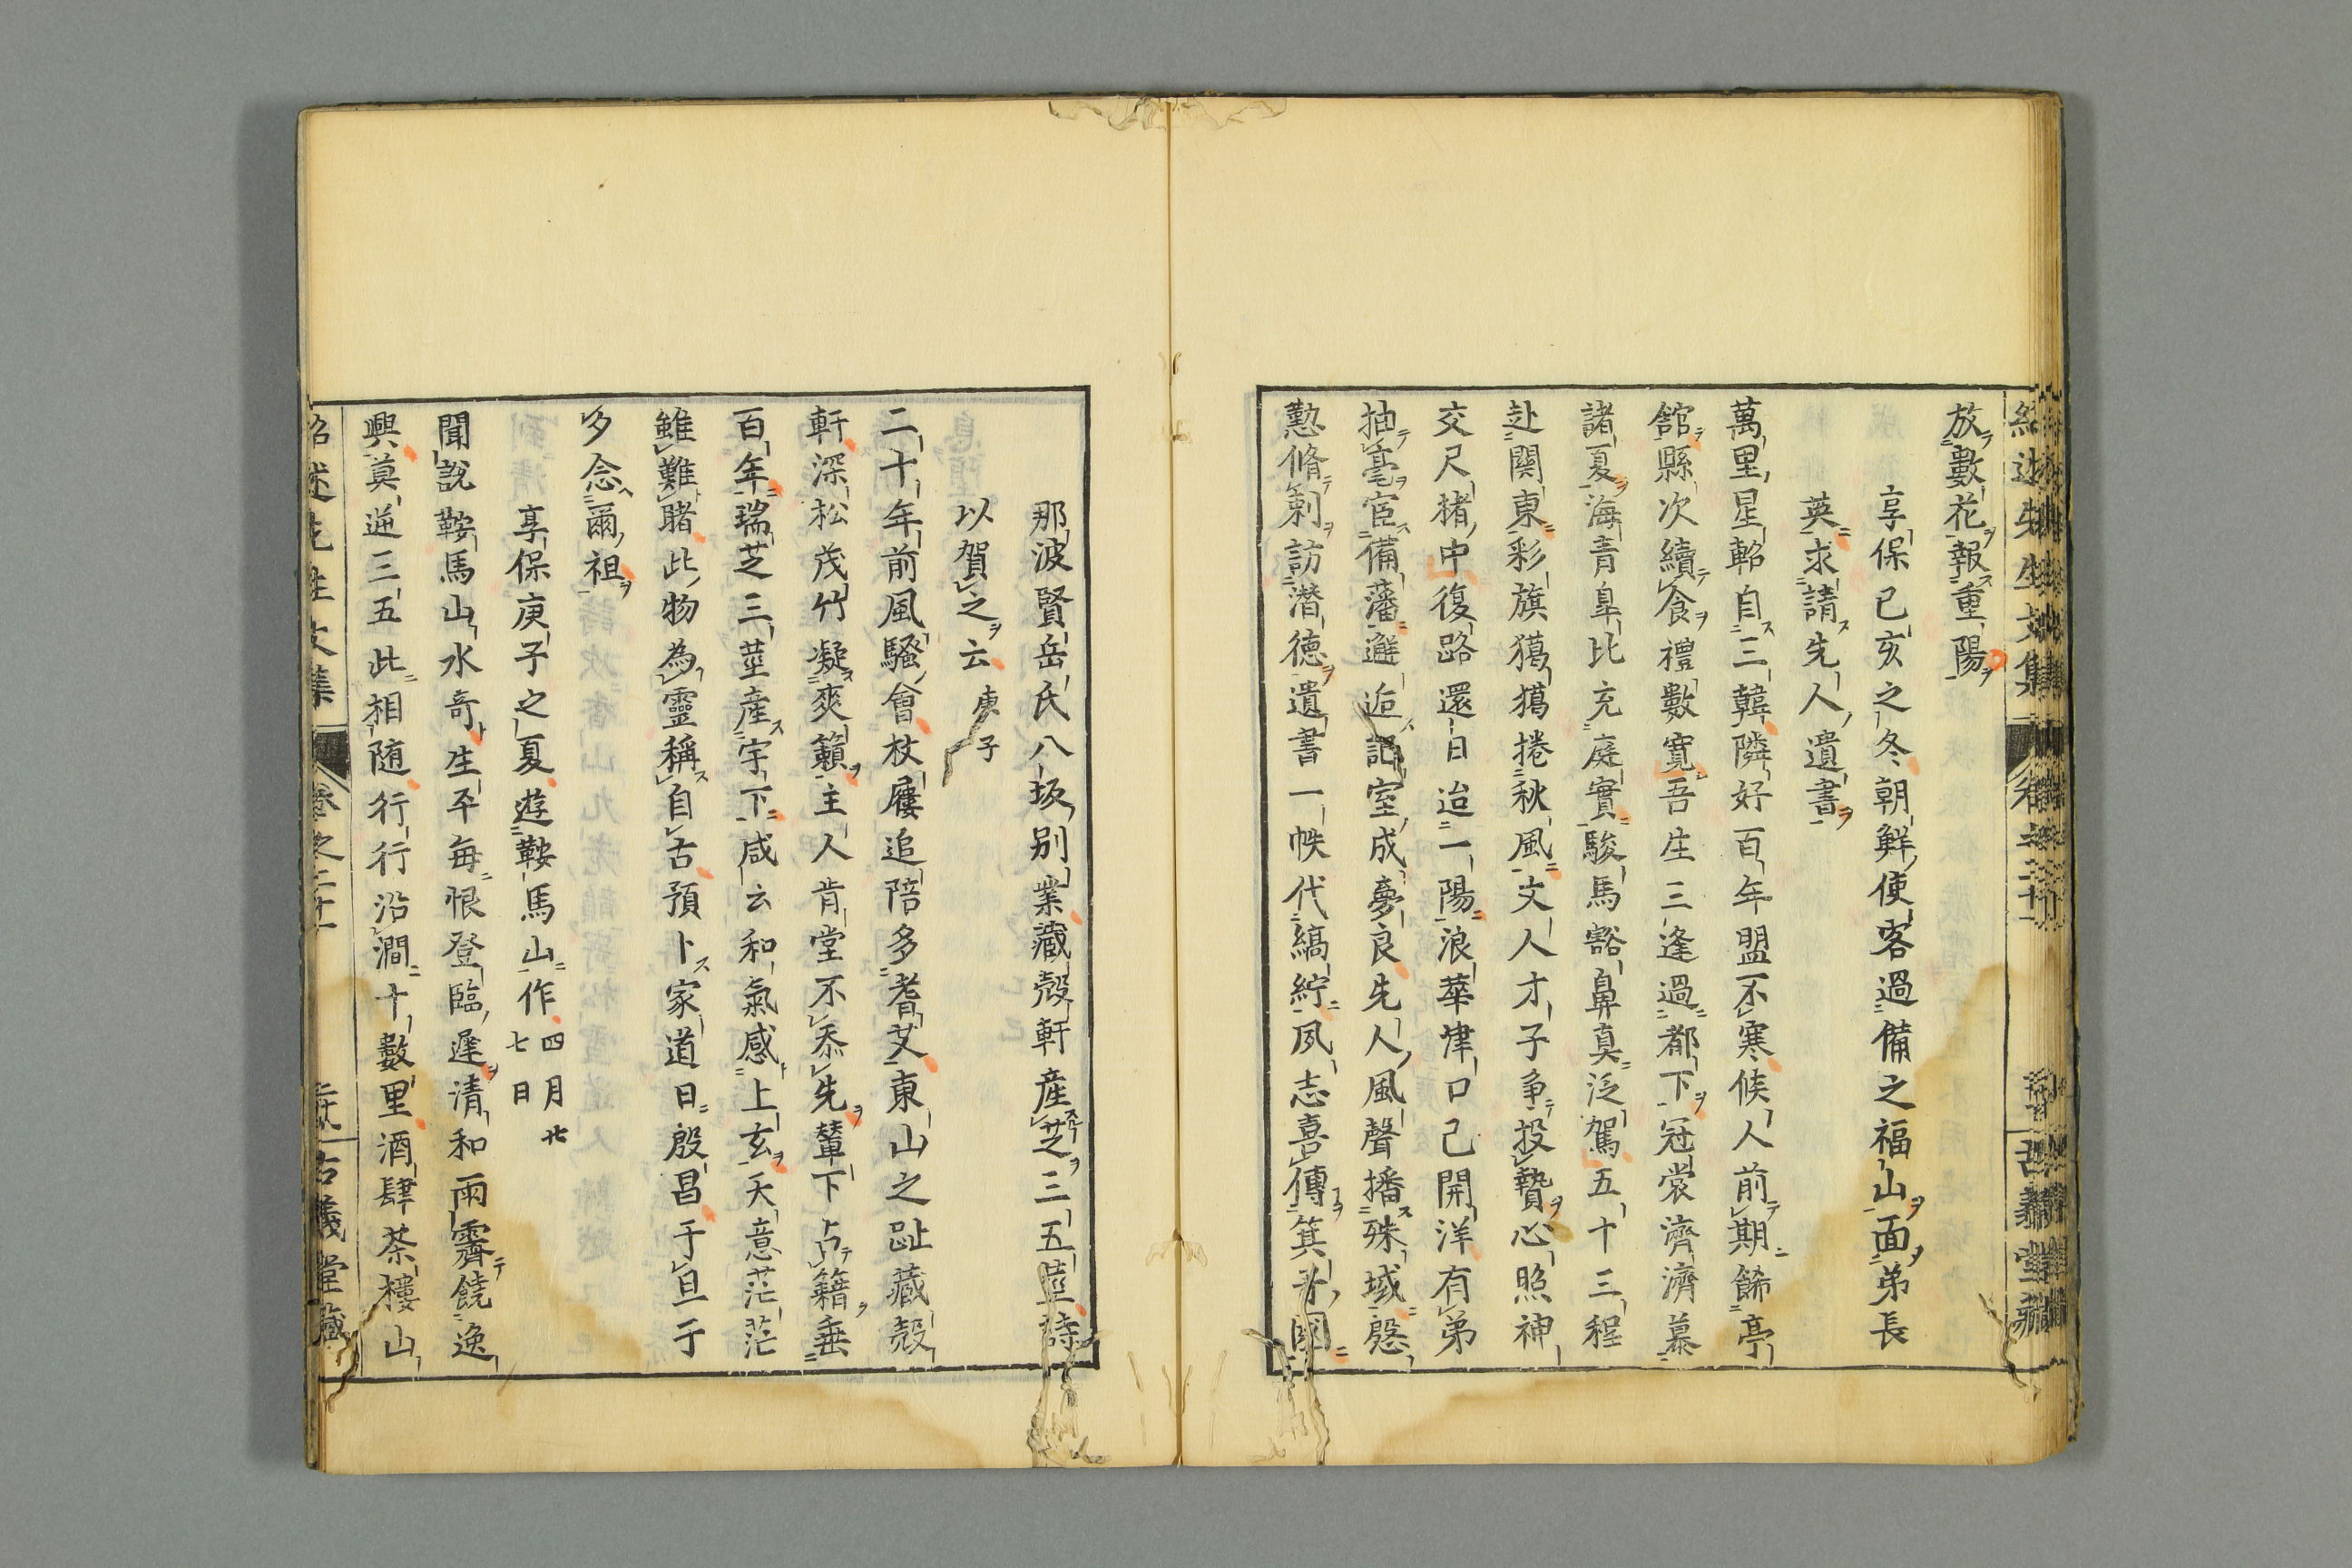 放數花報重陽
享保己亥之冬朝鮮使客過備之福山面弟長
英求請先人遺書
萬里星軺自三韓隣好百年盟不寒候人前期餙亭
舘縣次續食禮數寬吾生三逢過都下冠裳濟濟慕
諸夏海青皐比充庭實駿馬豁鼻真泛駕五十三程
赴関東彩旗獦獦捲秋風文人才子争投贄心照神
交尺楮中復路還日迨一陽浪華津口已開洋有弟
抽毫宦備藩邂逅記室成夢良先人風聲播殊域慇
懃脩剌訪潜徳遺書一帙代縞紵夙志喜傳箕
那波賢岳氏八坂別業藏殼軒産芝三五莖詩
以賀之云 庚子
二十年前風騷會杖屨追陪多耆艾東山之趾藏殼
軒深松茂竹凝爽籟主人肯堂不忝先輦下占籍垂
百年瑞芝三莖産宇下咸云和氣感上玄天意茫茫
雖難睹此物為靈稱自古預卜家道日殷昌于亘于
多念爾祖
享保庚子之夏遊鞍馬山作 四月廿七日
聞說鞍馬山水奇生平毎恨登臨遲清和雨霽饒逸
興莫逆三五此相随行行沿澗十數里酒肆茶樓山
紹述先生文集 卷之二十 古義堂藏